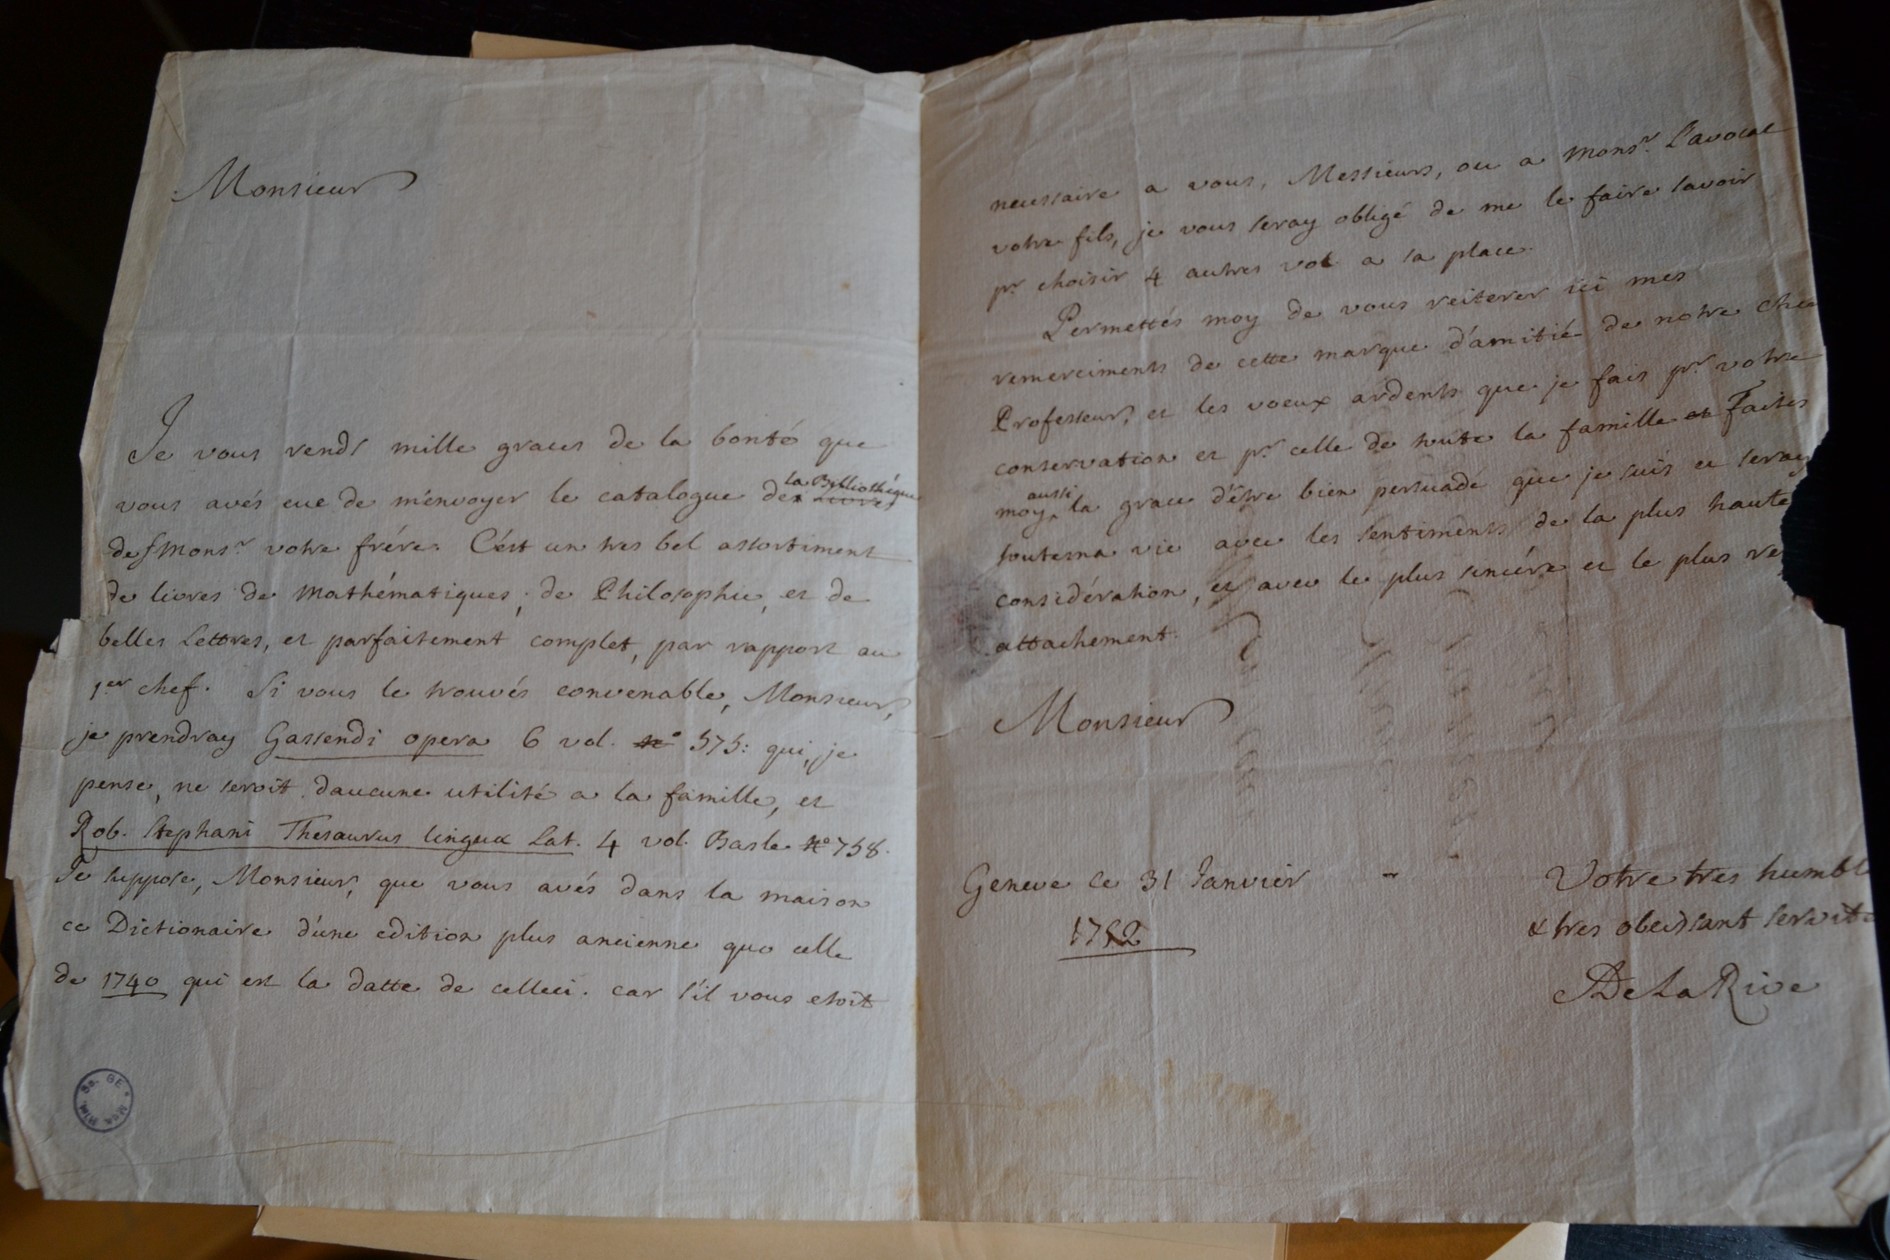 Monsieur
Je vous rends mille graces de la bonté que
vous avés eue de m'envoyer le catalogue de la Bibliothéque
de f Monsr votre frére. C'est un tres bel assortiment
de livres de Mathématiques, de Philosophie, et de
belles Lettres, et parfaitement complet, par rapport au
1er chef. Si vous le trouvés convenable, Monsieur,
je prendray Gassendi opera 6 vol. no 575: qui, je
pense, ne seroit d'aucune utilité a la famille, et
Rob. Stephani Thesaurus linguæ Lat. 4 vol. Basle No 758.
Je suppose, Monsieur, que vous avés dans la maison
ce Dictionaire d'une edition plus ancienne que celle
de 1740 qui est la datte de celleci. car s'il vous etoit
necessaire a vous, Messieurs, ou a Monsr. L'avocat
votre fils, je vous seray obligé de me le faire savoir
pr choisir 4 autres vol a sa place.
Permettés moy de vous reiterer ici mes
remerciments de cette marque d'amitié de notre cher
Professeur, et les voeux ardents que je fais pr. votre
conservation et pr. celle de toute la famille et Faites
moy aussi la grace d'être bien persuadé que je suis et seray
toutema vie avec les sentiments de la plus haute
considération, et avec le plus sincére et le plus
attachement.
Monsieur
Geneve ce 31 Janvier
1752
Votre tres humble
& tres obeissant
ADeLaRive
Ba. GE * Mss. Hist.